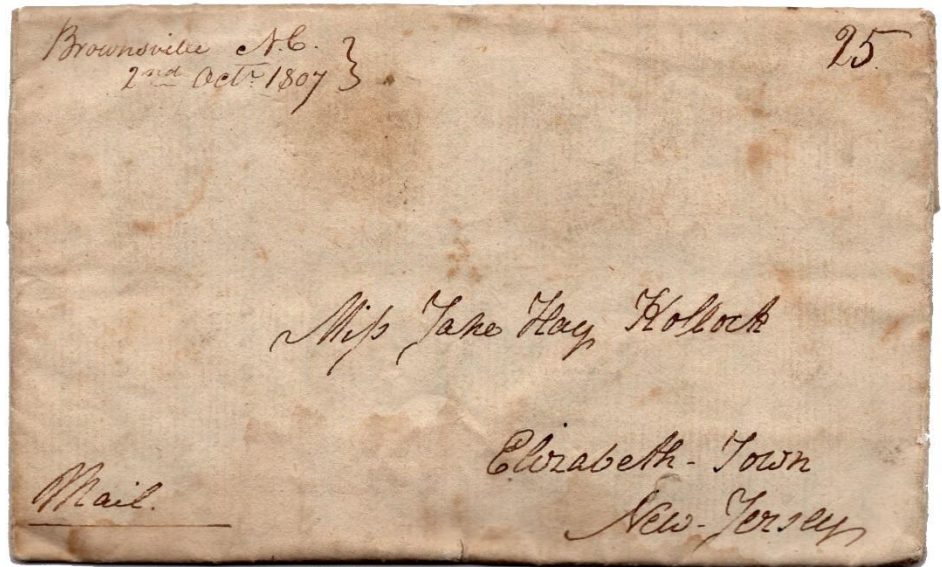 Brownsville N.C. }
2nd Octr. 1807
25
Miſs Jane Hay Kollock
Elizabeth-Town
New-Jersey
Mail.